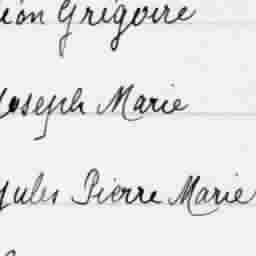 ion Grégoire
Joseph Marie
Jules Pierre Marie